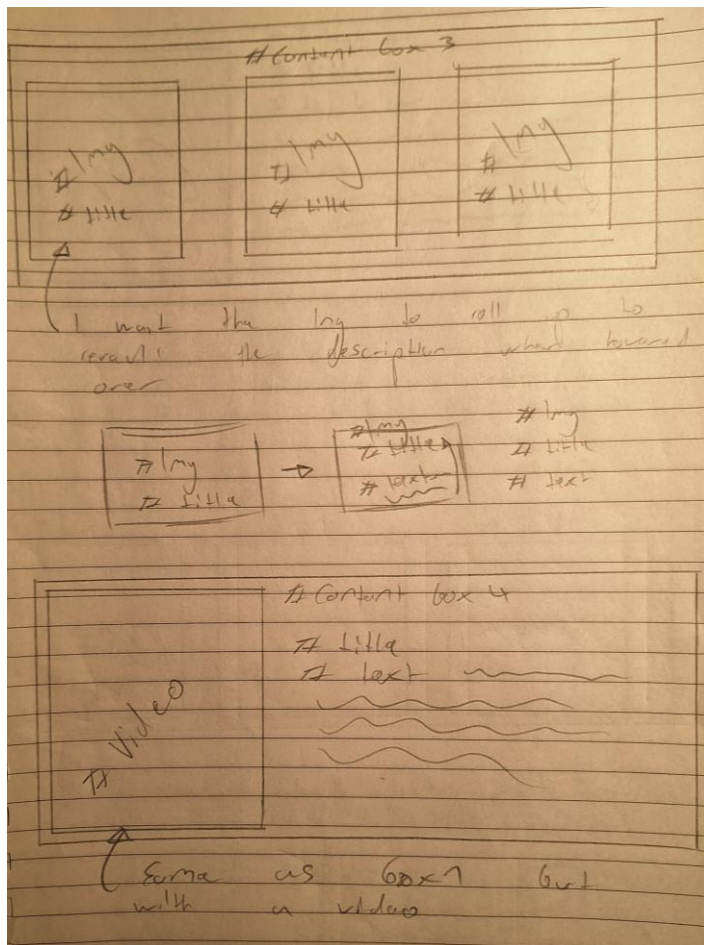 # Content box 3
# Img # Img # Img
# title # title # title
I want the Img to roll up to
reveal the description when hovered
over
# Img # Img # Img
# title # title # title
# text # text
# Content box 4
# title
# text
# Video
Same as box 1 but
with a video